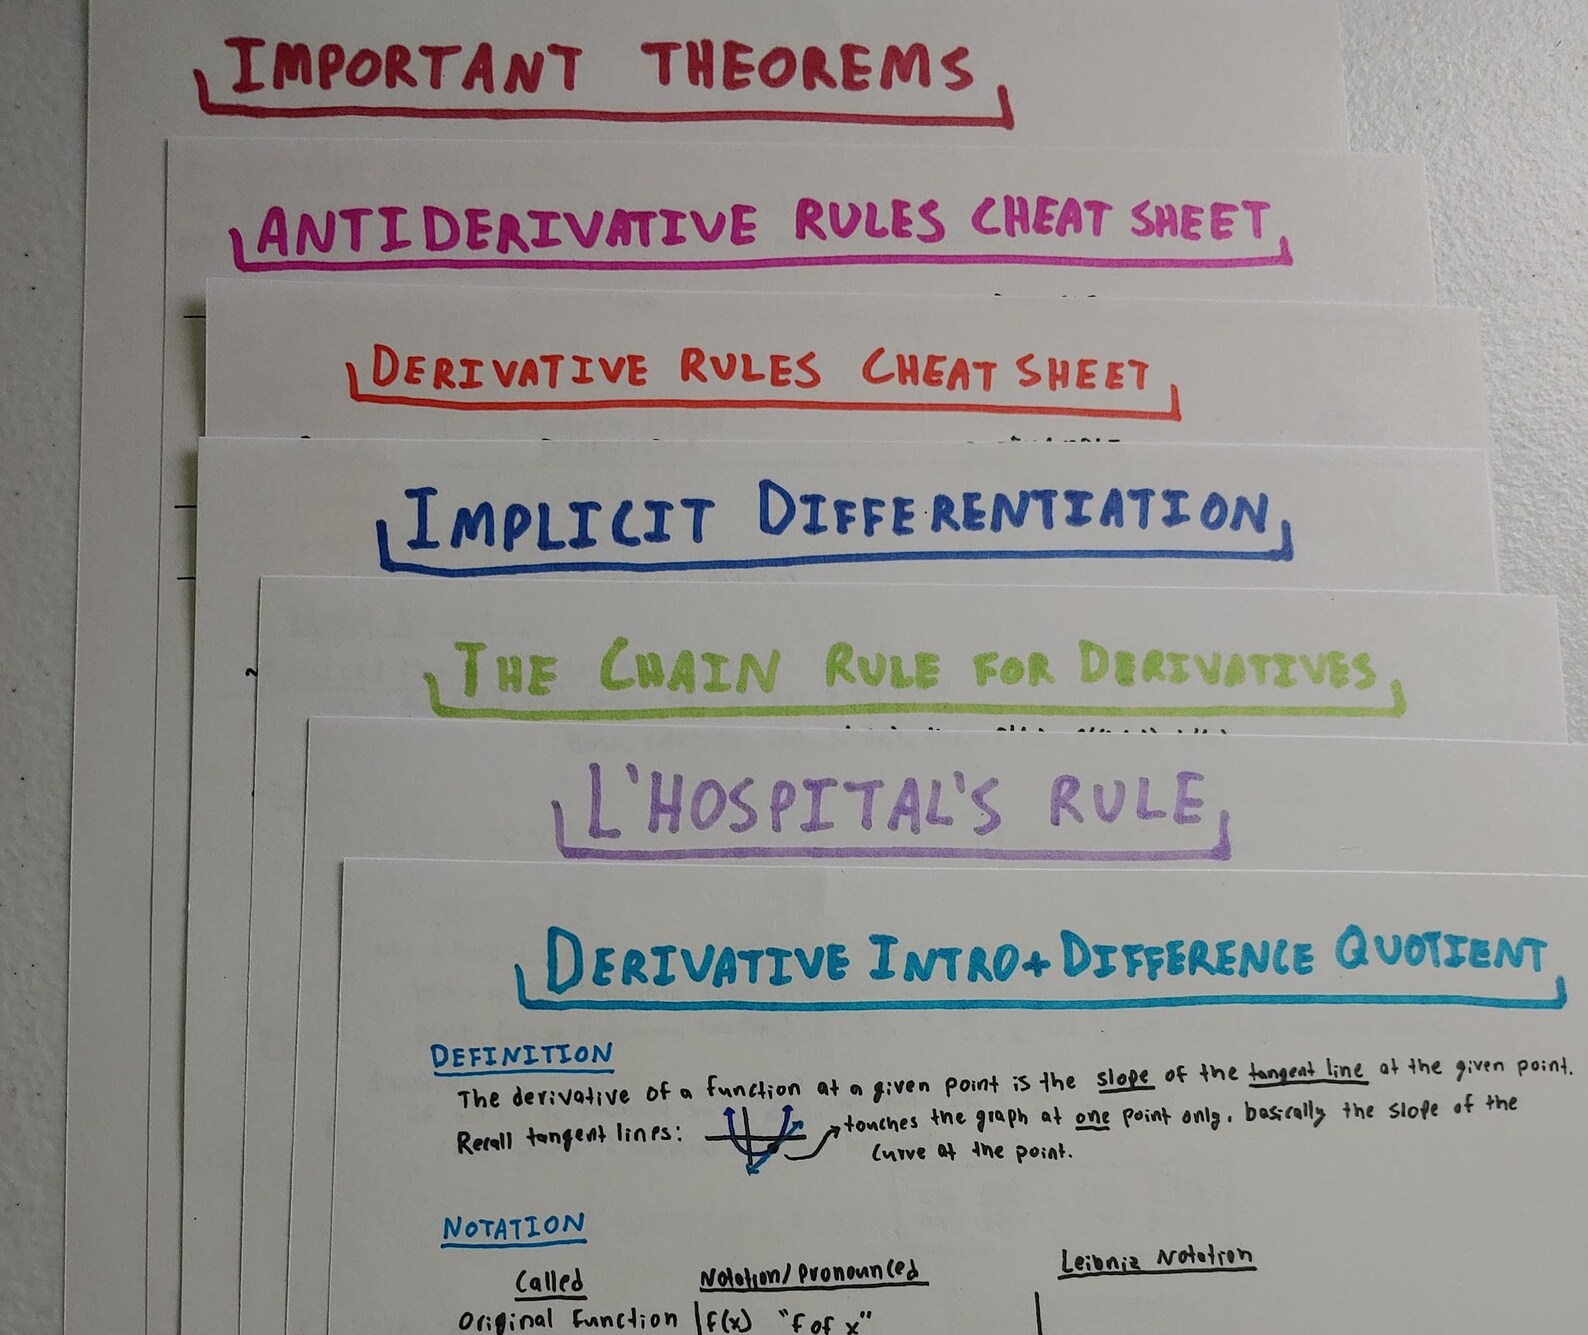 IMPORTANT THEOREMS
ANTIDERIVATIVE RULES CHEAT SHEET
DERIVATIVE RULES CHEAT SHEET
IMPLICIT DIFFERENTIATION
THE CHAIN RULE FOR DERIVATIVES
L'HOSPITAL'S RULE
DERIVATIVE INTRO + DIFFERENCE QUOTIENT
DEFINITION
The derivative of a function at a given point is the slope of the tangent line at the given point.
Recall tangent lines: touches the graph at one point only, basically the slope of the
curve at the point.
NOTATION
Called Notation/Pronounced Leibniz Notation
Original Function f(x) "f of x"